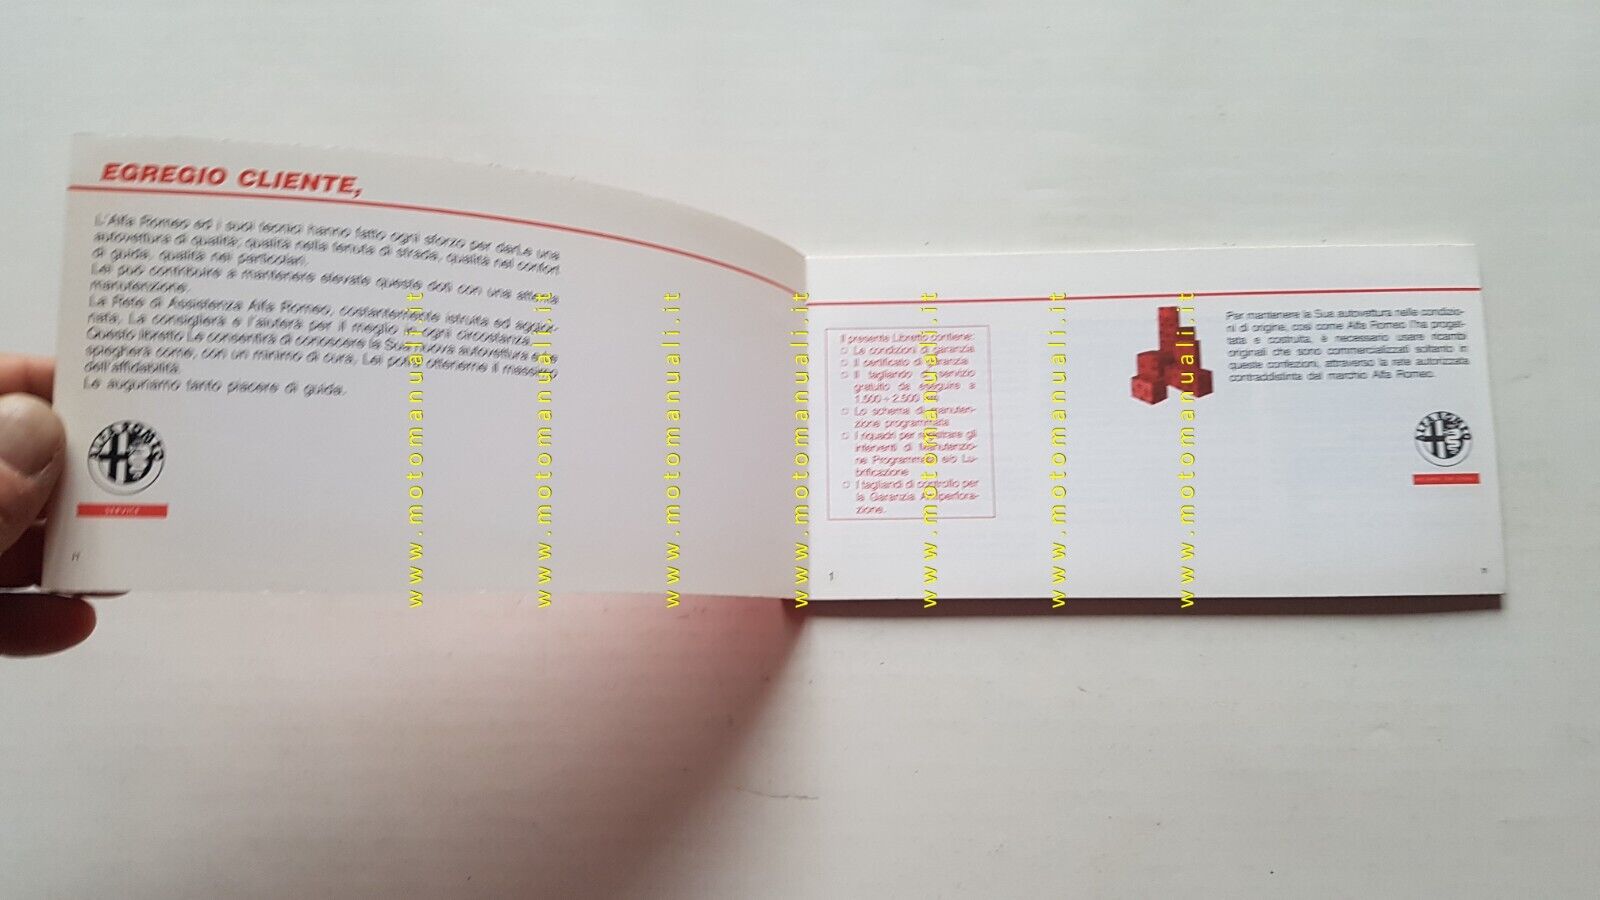 EGREGIO CLIENTE,
L'Alfa Romeo ed i suoi tecnici hanno fatto ogni sforzo per darLe una
autovettura di qualità; qualità nella tenuta di strada, qualità nel confort
di guida, qualità nei particolari.
Lei può contribuire a mantenere elevate queste doti con una attenta
manutenzione.
La Rete di Assistenza Alfa Romeo, costantemente istruita ed aggior-
nata, La consiglierà e l'aiuterà per il meglio in ogni circostanza.
Questo libretto Le consentirà di conoscere la Sua nuova autovettura e Le
spiegherà come, con un minimo di cura, Lei potrà ottenerne il massimo
dell'affidabilità.
Le auguriamo tanto piacere di guida.
ALFA ROMEO
SERVICE
Il presente Libretto contiene:
Le condizioni di garanzia
Il certificato di garanzia
Il tagliando servizio
gratuito da eseguire a
1.500 ÷ 2.500
Lo schema di manuten-
zione programmata
I riquadri per registrare gli
interventi di Manutenzio-
ne Programmata e/o Lu-
brificazione
I tagliandi di controllo per
la Garanzia Antiperfora-
zione.
1
Per mantenere la Sua autovettura nelle condizio-
ni di origine, così come Alfa Romeo l'ha proget-
tata e costruita, è necessario usare ricambi
originali che sono commercializzati soltanto in
queste confezioni, attraverso la rete autorizzata
contraddistinta dal marchio Alfa Romeo.
ALFA ROMEO
www.motomanuali.it
www.motomanuali.it
www.motomanuali.it
www.motomanuali.it
www.motomanuali.it
www.motomanuali.it
www.motomanuali.it